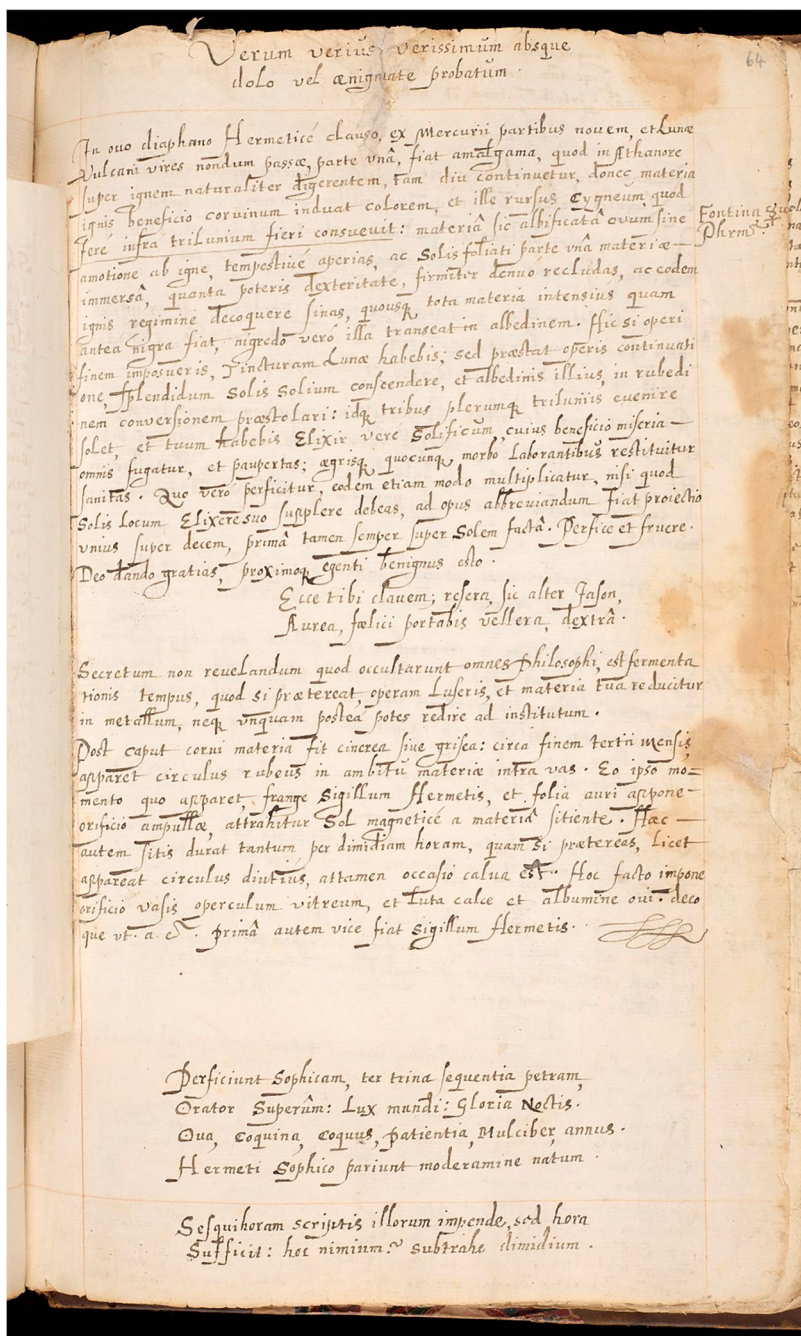 64
Verum verius verissimum absque
dolo vel ænigmate probatum.
In ovo diaphano Hermeticé clauso, ex Mercurii partibus novem, et Lunæ
Vulcani vires nondum passæ, parte vnâ, fiat amalgama, quod in Athanore
super ignem naturaliter digerentem, tam diu continuetur, donec materia
ignis beneficio corvinum induat colorem, et ille rursus Cygneum quod
feré infra trilunium fieri consuevit: materiâ sic albificatâ ovum sine
amotione ab igne, tempestivé aperias, ac Solis foliati parte vnâ materiæ
immersâ, quanta poteris dexteritate, firmiter denuo recludas, ac eodem
ignis regimine decoquere sinas, quousq tota materia intensius quam
antea nigra fiat, nigredo veró illa transeat in albedinem. Hic si operi
finem imposueris, Tincturam Lunæ habebis; sed præstat operis continuati
one, splendidum Solis Solium conscendere, et albedinis illius, in rubedi
nem conversionem præstolari: idq tribus plerumq triluniis evenire
solet, et tuum habebis Elixir veré Solificum, cuius beneficio miseria
omnis fugatur, et paupertas; ægrisq quocunq morbo laborantibus restituitur
sanitas. Quo vero perficitur, eodem etiam modo multiplicatur, nisi quod
Solis locum Elixere suo supplere debeas, ad opus abbreviandum fiat proiectio
vnius super decem, primâ tamen semper super Solem factâ. Perfice et fruere.
Deo dando gratias, proximoq egenti benignus esto.
Fontina
Ecce tibi clavem; resera, sic alter Jason,
Aurea, fælici portabis vellera, dextrâ.
Secretum non revelandum quod occultarunt omnes Philosophi, est fermenta
tionis tempus, quod si prætereat, operam luseris, et materia tua reducitur
in metallum, neq vnquam postea potes redire ad institutum.
Post caput corvi materia fit cinerea sive grisea: circa finem tertii mensis
apparet circulus rubeus in ambitu materiæ intra vas. Eo ipso mo=
mento quo apparet, frange Sigillum Hermetis, et folia auri appone
orificio ampullæ, attrahitur Sol magneticé a materiâ sitiente. Hæc
autem sitis durat tantum per dimidiam horam, quam si prætereas, licet
appareat circulus diutius, attamen occasio calva est. Hoc facto impone
orificio vasis operculum vitreum, et luta calce et albumine ovi. deco
que vt. a. e. Primâ autem vice fiat Sigillum Hermetis.
Perficiunt Sophicam, ter trina sequentia petram,
Orator Superûm: Lux mundi: Gloria Noctis.
Ova, Coquina, Coquus, Patientia, Mulciber, annus.
Hermeti Sophico pariunt moderamine natum.
Sesquihoram scriptis illorum impende, sed hora
Sufficit: hoc nimium? subtrahe dimidium.